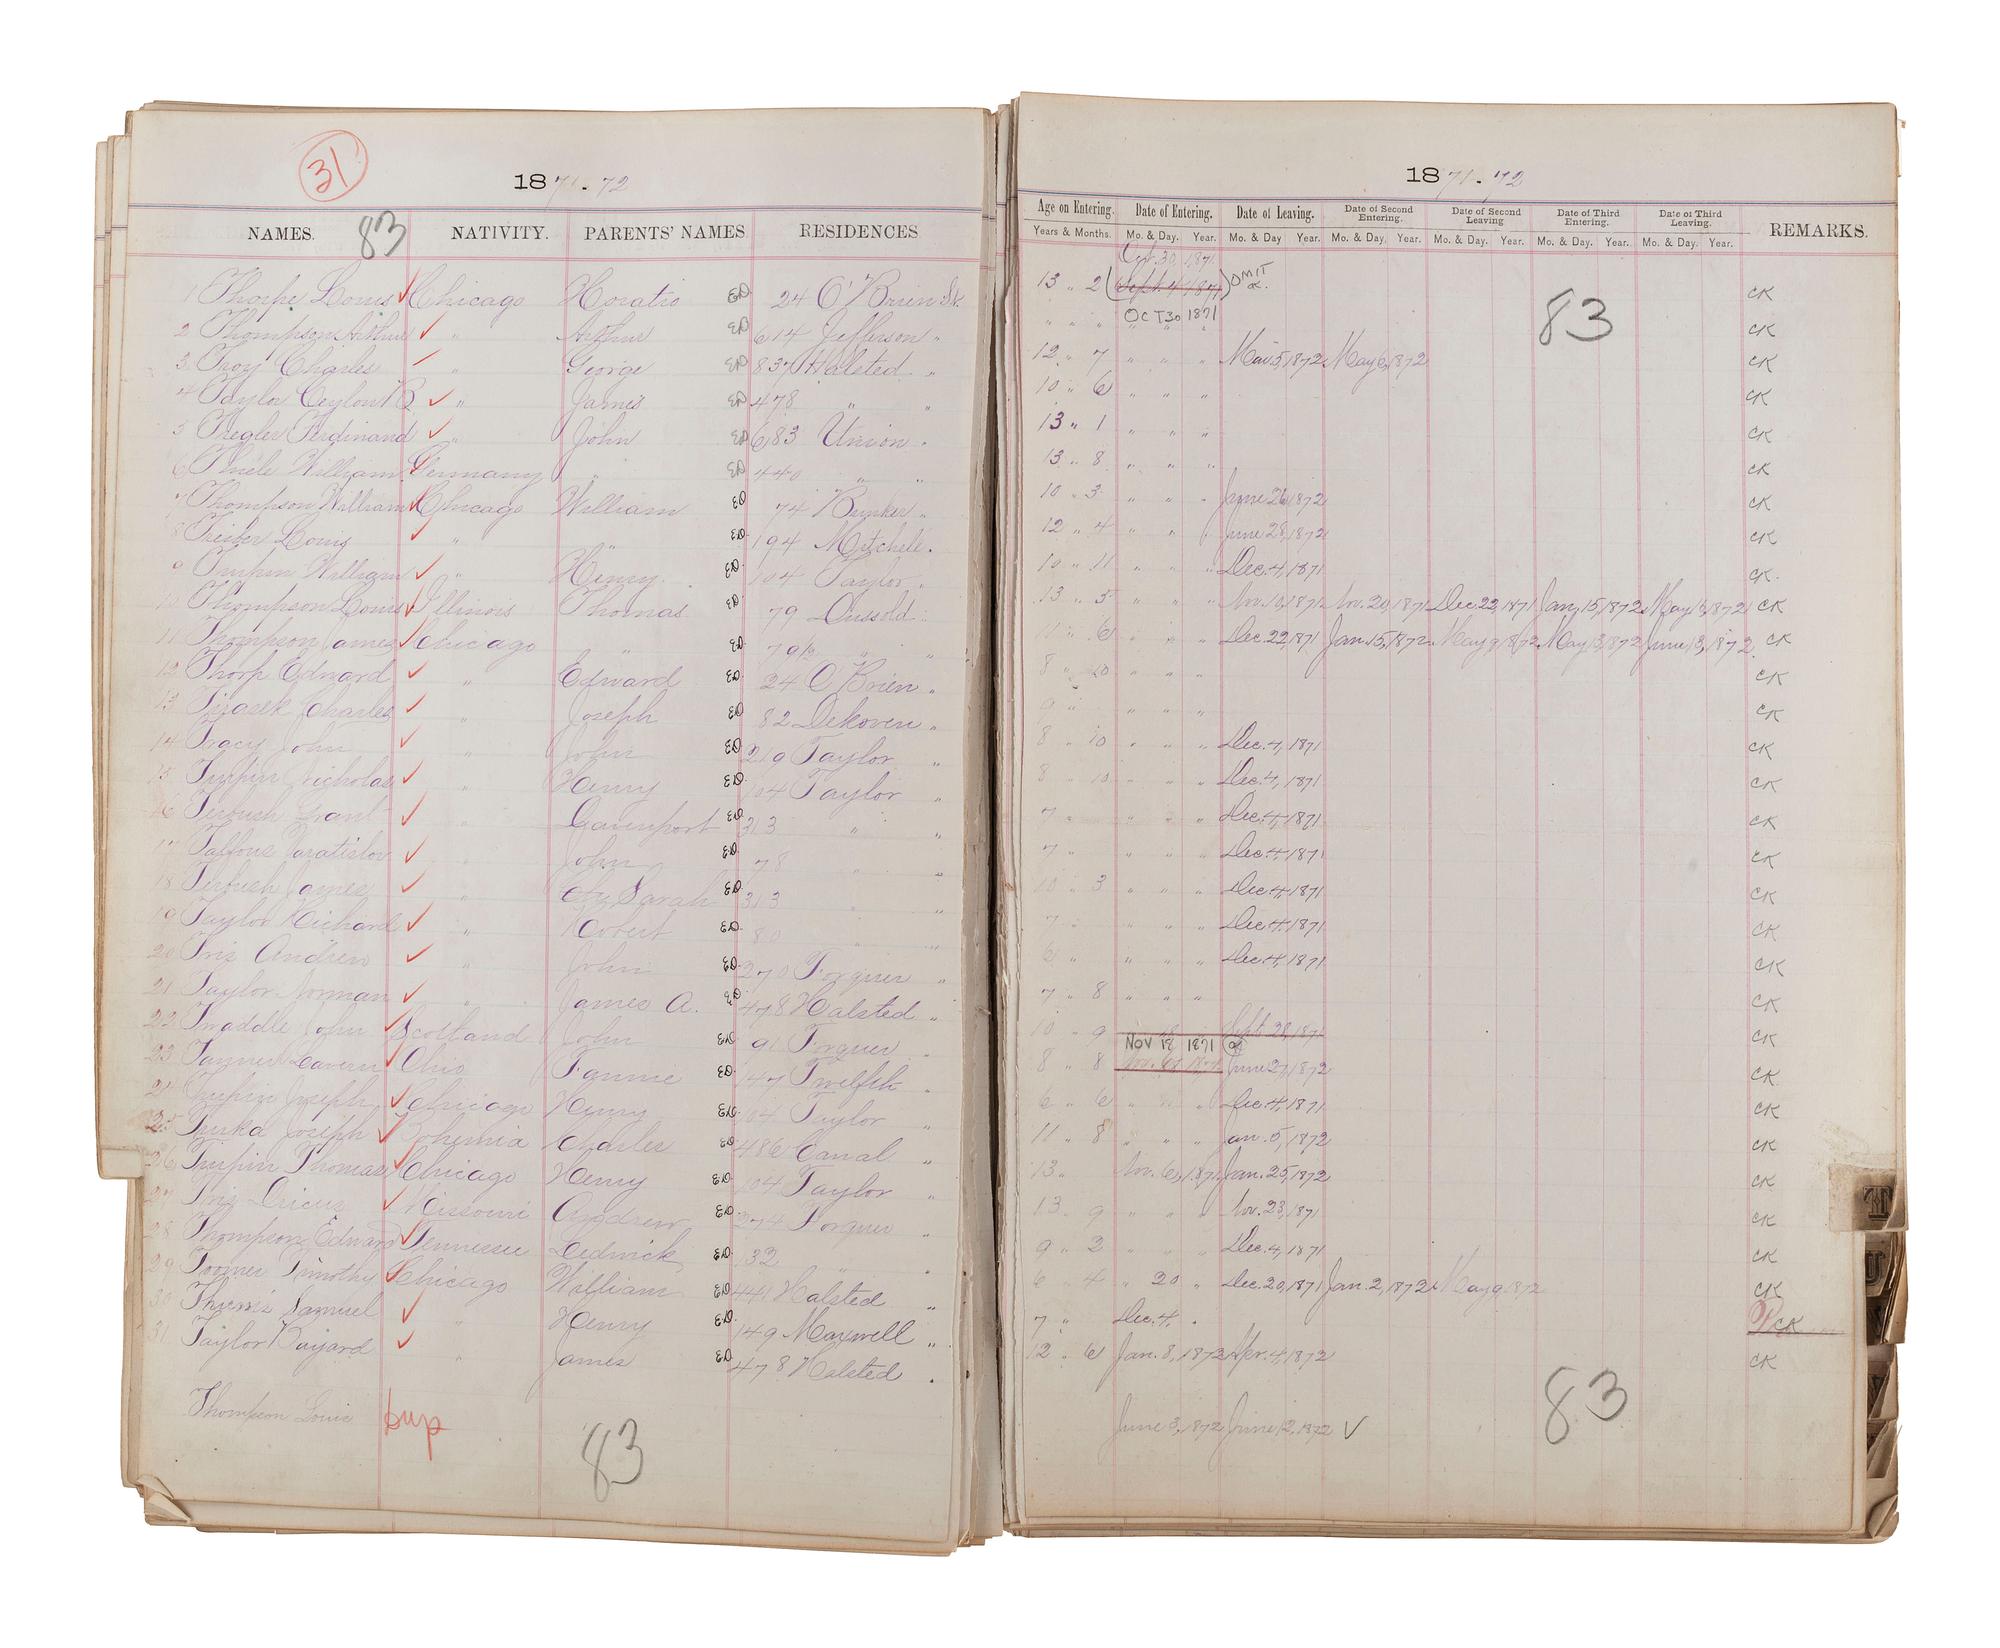 31
1871-72
NAMES. 83 NATIVITY. PARENTS' NAMES RESIDENCES
1 Thorpe Louis ✓ Chicago Horatio ED 24 O'Brien St.
2 Thompson Arthur ✓ " Arthur ED 614 Jefferson "
3 Troy Charles ✓ " George ED 837 Halsted "
4 Taylor Ceylon R ✓ " James ED 478 " "
5 Tregler Ferdinand ✓ " John ED 683 Union "
6 Thiele William ✓ Germany " ED 440 " "
7 Thompson William ✓ Chicago William ED 74 Bunker "
8 Treiber Louis ✓ " " ED 194 Mitchell "
9 Turpin William ✓ " Henry ED 104 Taylor "
10 Thompson Louis ✓ Illinois Thomas ED 79 "
11 Thompson James ✓ Chicago " ED 79½ " "
12 Thorp Edward ✓ " Edward ED 24 O'Brien "
13 Jirasek Charles ✓ " Joseph ED 82 Dekoven "
14 Tracy John ✓ " John ED 219 Taylor "
15 Turpin Nicholas ✓ " Henry ED 104 Taylor "
16 Grant ✓ " Davenport ED 313 " "
17 ✓ " John ED 78 " "
18 Terbush James ✓ " Sarah ED 313 " "
19 Taylor Richard ✓ " Robert ED 80 " "
20 Triz Andrew ✓ " John ED 270 Forquer "
21 Taylor Norman ✓ " James A. ED 478 Halsted "
22 Twaddle John ✓ Scotland John ED 91 Forquer "
23 Tanner Lavern ✓ Ohio Fannie ED 147 Twelfth "
24 Turpin Joseph ✓ Chicago Henry ED 104 Taylor "
25 Turka Joseph ✓ Bohemia Charles ED 486 Canal "
26 Turpin Thomas ✓ Chicago Henry ED 104 Taylor "
27 Triz ✓ Missouri Andrew ED 274 Forquer "
28 Thompson Edward ✓ Tennessee Ledwick ED 132 " "
29 Toomer Timothy ✓ Chicago William ED 441 Halsted "
30 Samuel ✓ " Henry ED 149 Maxwell "
31 Taylor Bayard ✓ " James ED 478 Halsted "
Thompson Louis Dup
83
1871-72
Age on Entering. Date of Entering. Date of Leaving. Date of Second Entering. Date of Second Leaving Date of Third Entering. Date of Third Leaving. REMARKS.
Years & Months. Mo. & Day. Year. Mo. & Day Year. Mo. & Day. Year. Mo. & Day. Year. Mo. & Day. Year. Mo. & Day. Year.
Oct. 30, 1871
13 " 2 (Sept. 4, 1871) OMIT CK
83
" " " OCT 30 1871 CK
12 " 7 " " " Mar. 5, 1872 May 6, 1872 CK
10 " 6 " " " CK
13 " 1 " " " CK
13 " 8 " " " CK
10 " 3 " " " June 26, 1872 CK
12 " 4 " " " June 28, 1872 CK
10 " 11 " " " Dec. 4, 1871 CK.
13 " 5 " " " Nov. 10, 1871 Nov. 20, 1871 Dec. 22, 1871 Jan. 15, 1872 May 16, 1872 CK
11 " 6 " " " Dec. 22, 1871 Jan. 15, 1872 May 9, 1872 May 13, 1872 June 13, 1872 CK
8 " 10 " " " CK
9 " " " " CK
8 " 10 " " " Dec. 4, 1871 CK
8 " 10 " " " Dec. 4, 1871 CK
7 " " " " Dec. 4, 1871 CK
7 " " " " Dec. 4, 1871 CK
10 " 3 " " " Dec. 4, 1871 CK
7 " " " " Dec. 4, 1871 CK
6 " " " " Dec. 4, 1871 CK
7 " 8 " " " CK
10 " 9 Sept 28, 1871 CK
NOV 18 1871
8 " 8 June 27, 1872 CK
6 " 6 " " " Dec. 4, 1871 CK
11 " 8 " " " Jan. 5, 1872 CK
13 " Nov. 6, 1871 Jan. 25, 1872 CK
13 " 9 " " " Nov. 23, 1871 CK
9 " 2 " " " Dec. 4, 1871 CK
6 " 4 " 20 " Dec. 20, 1871 Jan. 2, 1872 May 9, 1872 CK
7 " Dec. 4, " CK
12 " 6 Jan. 8, 1872 Apr. 4, 1872 CK
83
June 3, 1872 June 12, 1872 ✓
T
U